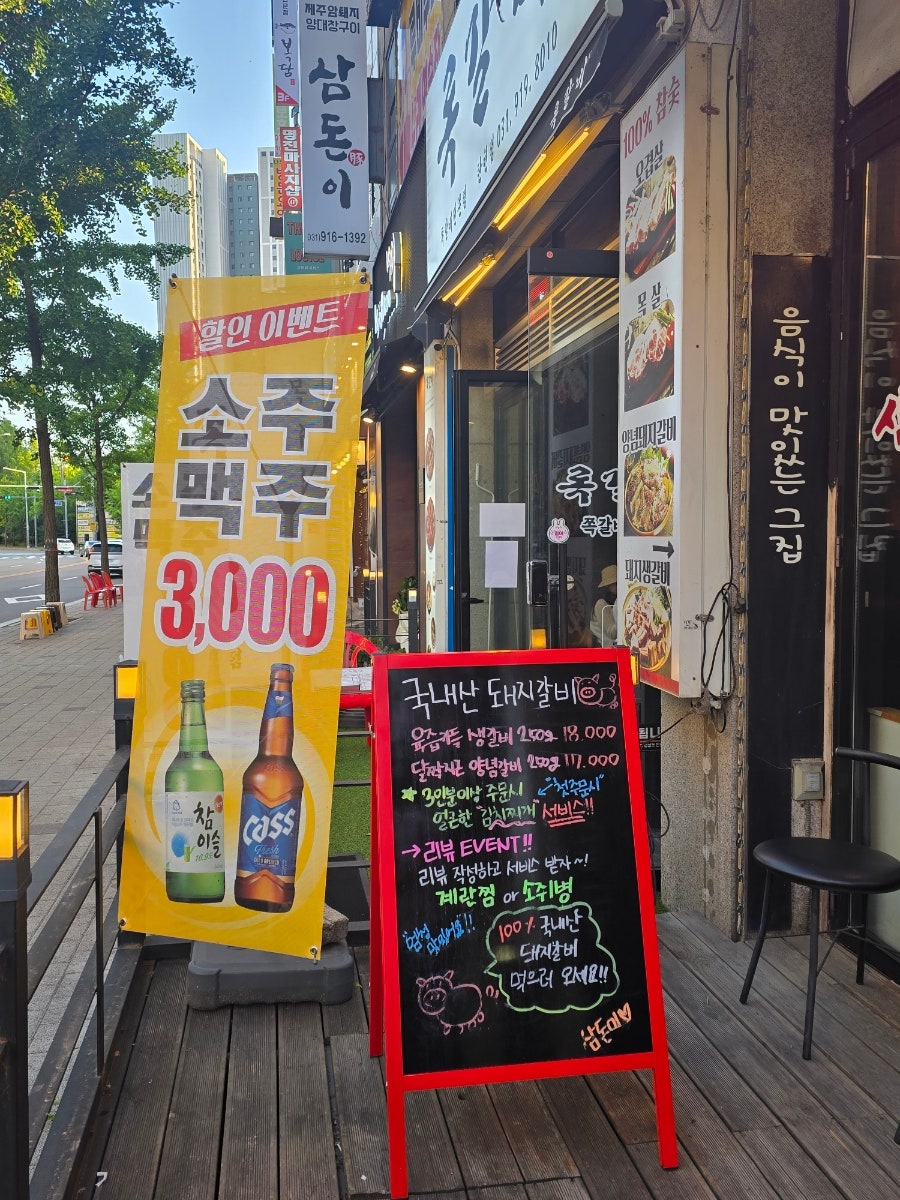 제주암퇘지
양대창구이
삼돈이
豚
031)916-1392
명진마사지샵
031. 919. 8010
할인 이벤트
소주
맥주
3,000
참이슬
16.9도
cass
fresh
100% 참숯
오겹살
목살
양념돼지갈비
돼지생갈비
쪽갈비
음식이 맛있는 그집
국내산 돼지갈비
육즙가득 생갈비 250g 18.000
달짝지근 양념갈비 250g 17.000
★ 3인분이상 주문시 ↙"첫주문시"
얼큰한 "김치찌개" 서비스!!
→ 리뷰 EVENT!!
리뷰 작성하고 서비스 받자~!
계란찜 or 소주1병
맛있어요"!!
100% 국내산
돼지갈비
먹으러 오세요!!
삼돈이♡